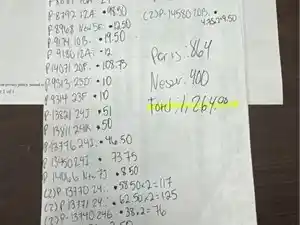 P-8792 12A. • 48.50
P-8968 New SE. • 12.50
P-9174 10B. • 19.50
P-9180 12A. • 12
P-14071 20P. • 108.75
P-9313 23D • 10
P-9314 23F • 10
P-13821 24J • 51
P-13811 24R • 50
P-13776 24J. • 46.50
P-13450 24J • 73.75
P-14066 New 7J • 8.50
(2) P-13770 24. • 58.50x2=117
(2) P-13771 24. • 62.50x2=125
(2) P-13740 24G • 38x2=76
(2) P-14580 20B. •
4.75x2=9.50
Paris: 864
Neser: 400
Total: 1,264.00